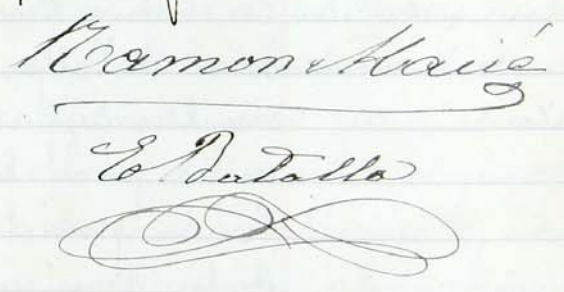 Ramon Macié
E Batalla